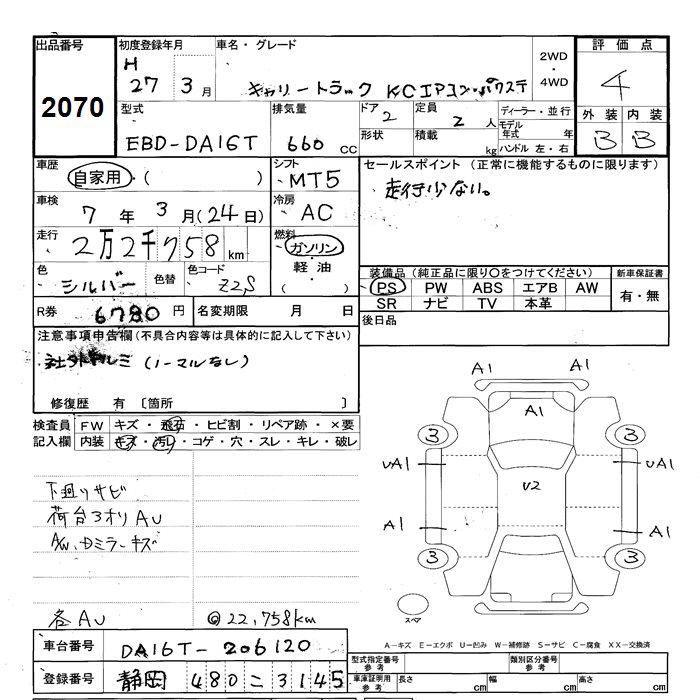 出品番号 初度登録年月 車名・グレード 評価点
2070
H 27 3 月
キャリートラック KCエアコン・パワステ
2WD
4WD
4
型式 排気量 ドア 定員 ディーラー・並行 外装 内装
EBD-DA16T 660 CC 2 2 人 モデル年式 年
形状 積載 kg ハンドル 左・右 B B
車歴 シフト セールスポイント (正常に機能するものに限ります)
自家用・( ) MT5
走行少ない。
車検 冷房
7 年 3 月(24日) AC
走行 燃料
2万2千758 km ガソリン・
軽油・
( )
色 シルバー 色替 色コード Z2S
装備品 (純正品に限り○をつけてください) 新車保証書
PS PW ABS エアB AW 有・無
SR ナビ TV 本革
R券 6780 円 名変期限 月 日 後日品
注意事項申告欄(不具合内容等は具体的に記入して下さい)
社外アルミ (ノーマルなし)
修復歴 有 〔箇所 〕
検査員 FW キズ・飛石・ヒビ割・リペア跡・×要
記入欄 内装 キズ・汚レ・コゲ・穴・スレ・キレ・破レ
下廻りサビ
荷台3オリAU
A/W、Dミラーキズ
各AU @22,758km
A1 A1 A1
3 3
UA1 U2 UA1
A1 A1
3 3
スペア
A-キズ E-エクボ U-凹み W-補修跡 S-サビ C-腐食 XX-交換済
車台番号 DA16T-206120
登録番号 静岡 480 ニ 3145
型式指定番号 参考 類別区分番号 参考
車庫証明用 参考 長さ cm 幅 cm 高さ cm